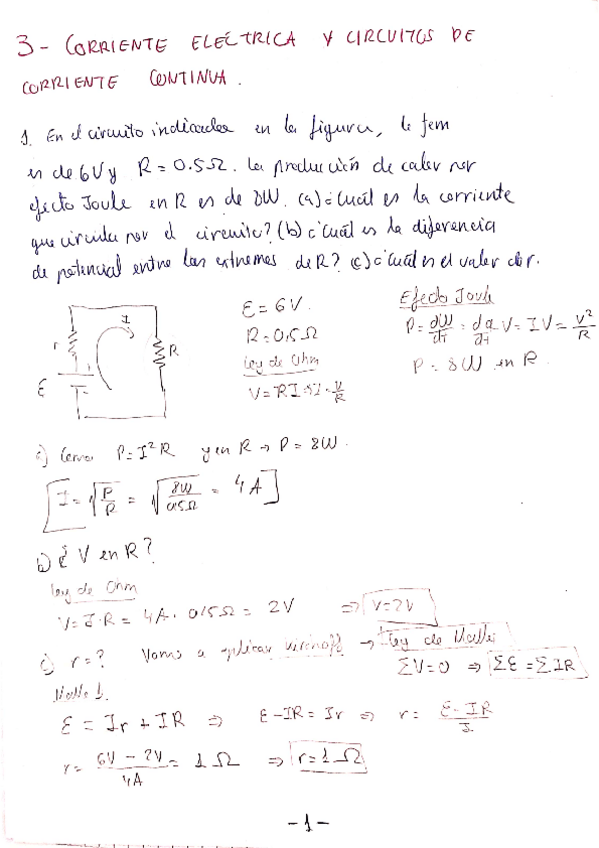 3 - CORRIENTE ELÉCTRICA Y CIRCUITOS DE
CORRIENTE CONTINUA.
1. En el circuito indicado en la figura, la fem
es de 6V y R = 0.5Ω. La producción de calor por
efecto Joule en R es de 8W. (a) ¿Cuál es la corriente
que circula por el circuito? (b) ¿Cuál es la diferencia
de potencial entre los extremos de R? (c) ¿Cuál es el valor de r.
I
r
R
ε
ε = 6V.
R = 0,5Ω
Ley de Ohm
V = RI → I = V/R
Efecto Joule
P = dW/dt = dq/dt V = IV = V²/R
P = 8W en R.
a) Como P = I²R y en R → P = 8W.
[I = √(P/R) = √(8W/0,5Ω) = 4A]
b) ¿V en R?
Ley de Ohm
V = I·R = 4A · 0,5Ω = 2V ⇒ V = 2V
c) r = ? Vamos a aplicar → Ley de Mallas
ΣV = 0 ⇒ Σε = ΣIR
Malla 1.
ε = Ir + IR ⇒ ε - IR = Ir ⇒ r = (ε - IR)/I
r = (6V - 2V)/4A = 1Ω ⇒ r = 1Ω
- 1 -